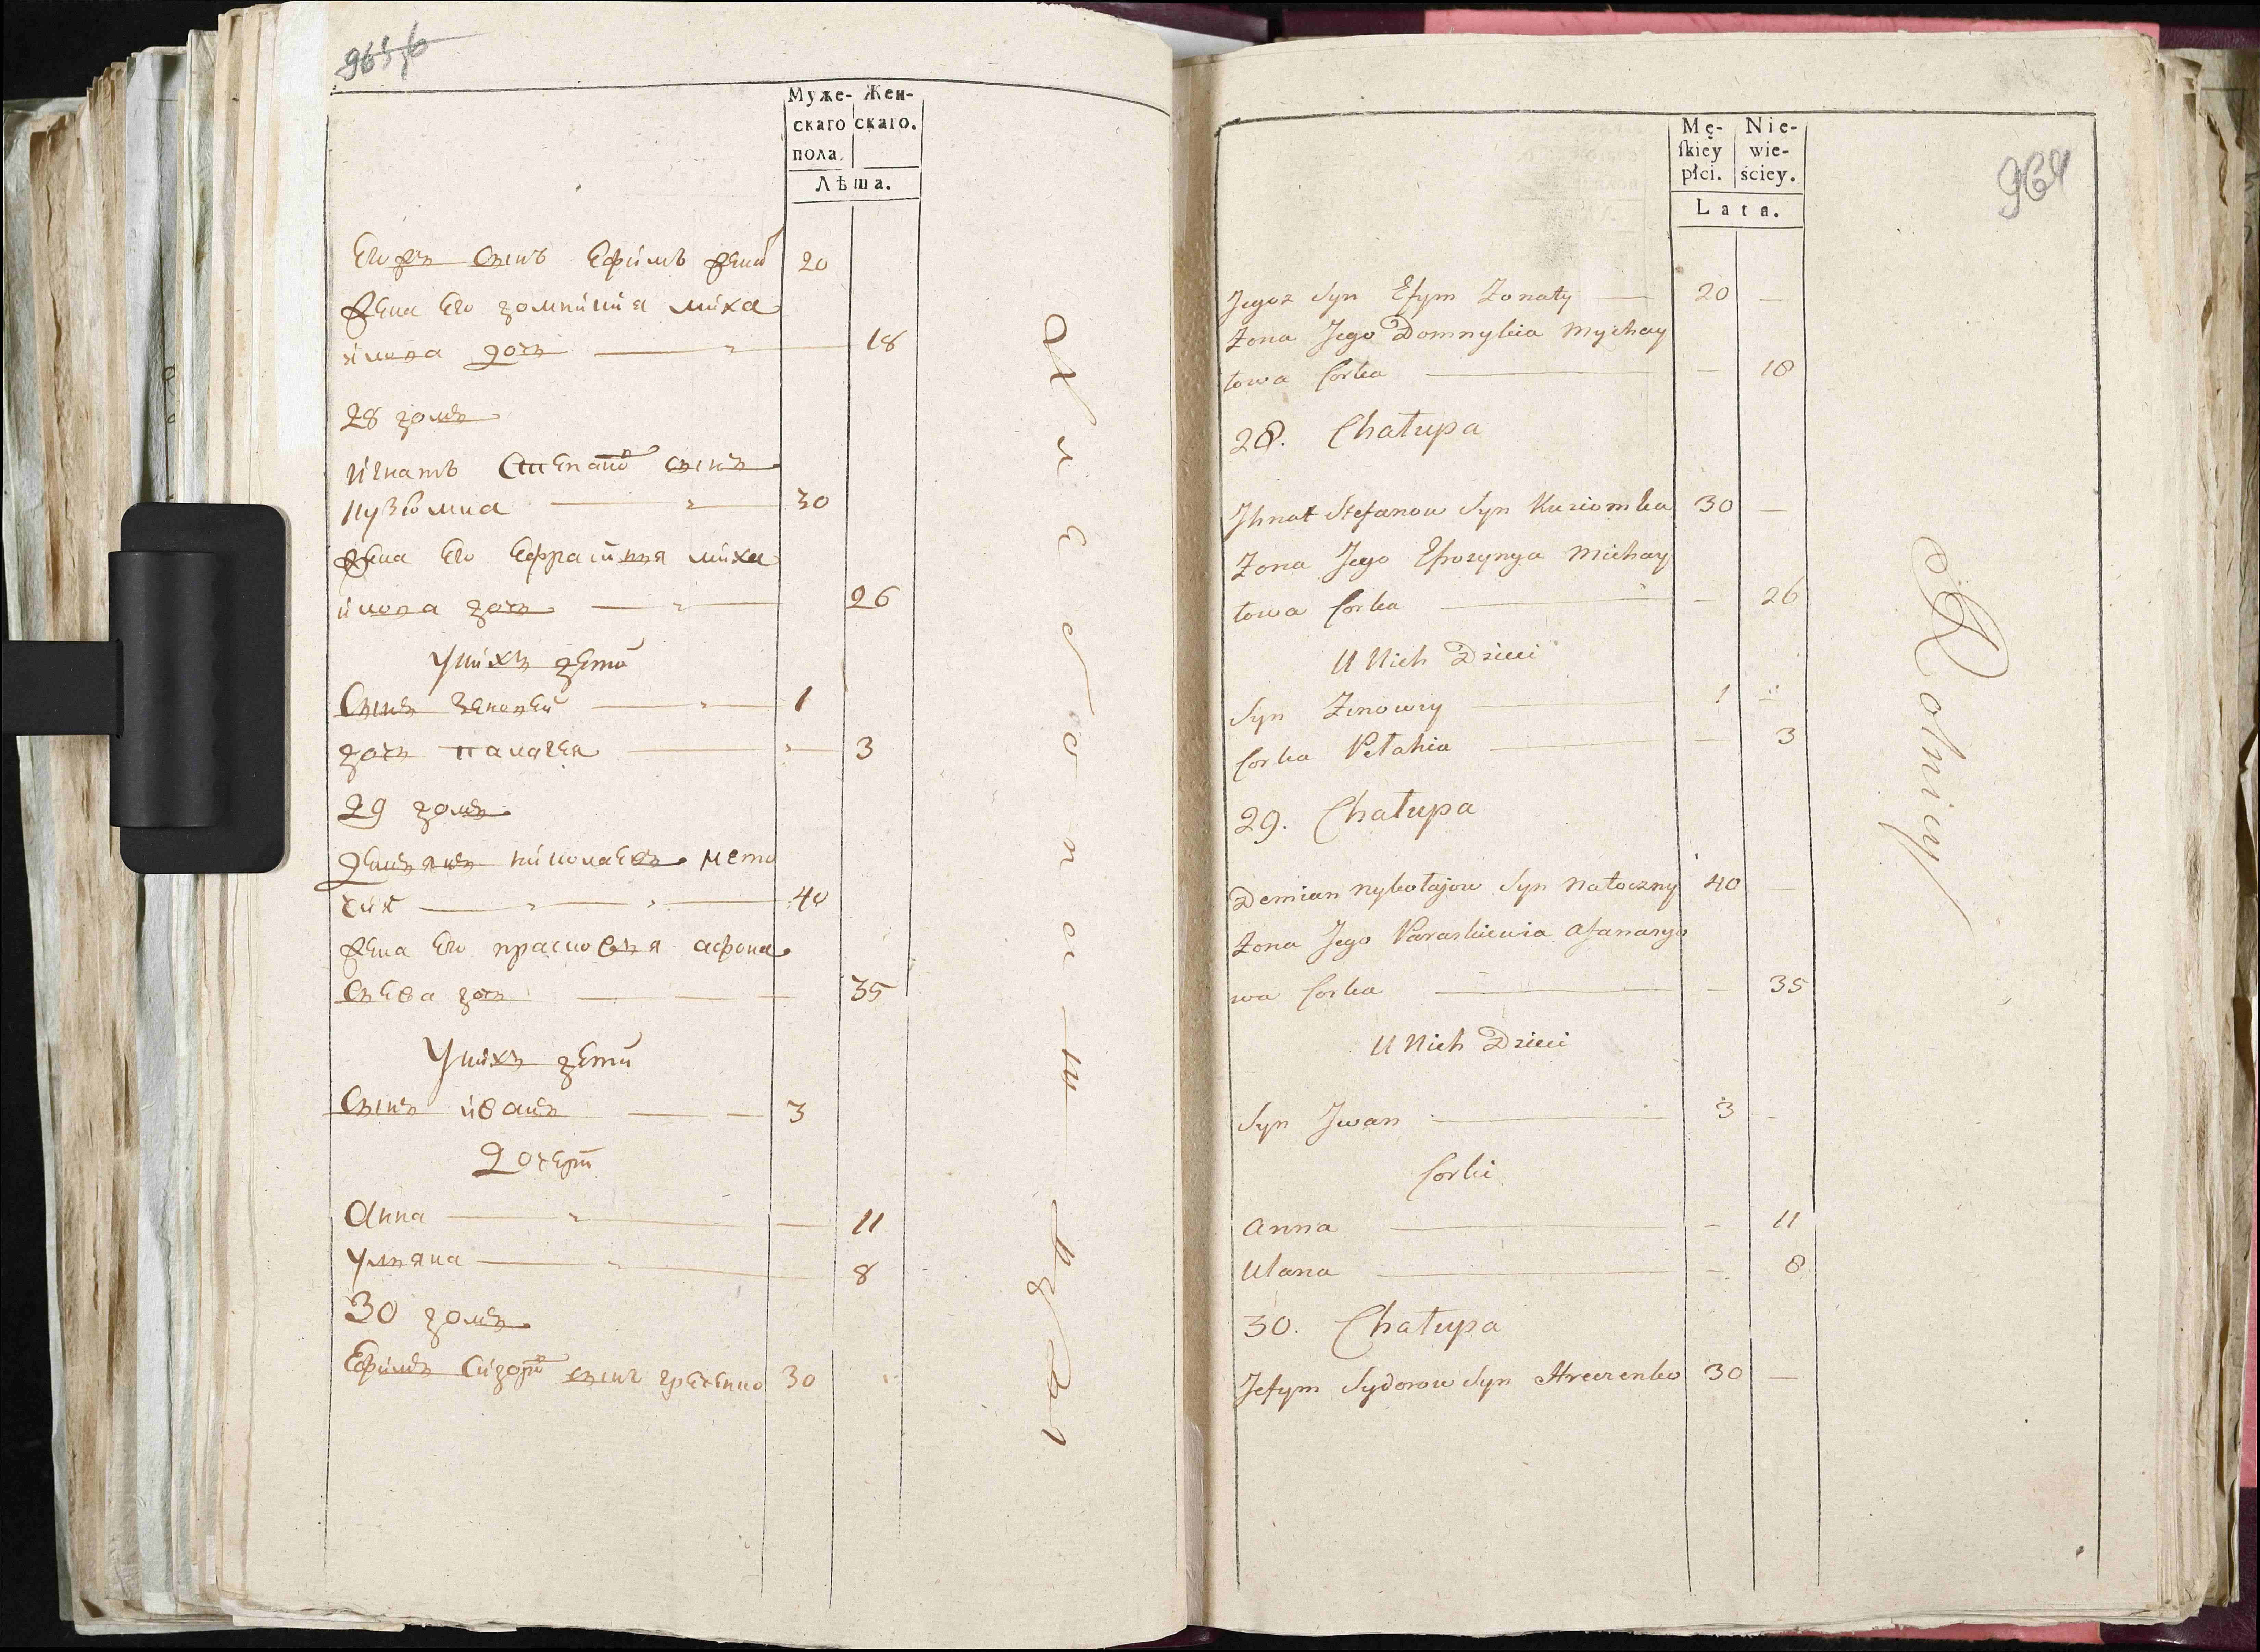 Муже- Жен-
скаго скаго.
пола.
Лѣта.
Егоръ сынъ Ефимъ жена 20
Жена Его Домникия Миха
йлова дочь 18
28 домъ
Игнатъ Степановъ сынъ
Кузiомка 30
Жена Его Ефрасиния Миха
йлова дочь 26
У нихъ дети
Сынъ Зеновей 1
дочь Палагея 3
29 домъ
Демьянъ Николаевъ
40
Жена Его Прасковья Афона
сьева дочь 35
У нихъ дети
Сынъ Иванъ 3
Дочери
Анна 11
Ульяна 8
30 домъ
Ефимъ Сидоровъ сынъ Греченко 30
Хлебопашцы
Mę- Nie-
skiey wie-
płci. ściey.
Lata.
964
Jegoż Syn Efym Żonaty 20
Żona Jego Domnykia Mychay
łowa Corka 18
28. Chałupa
Jhnat Stefanow Syn Kuziomka 30
Żona Jego Efrozynya Michay
łowa Corka 26
U Nich Dzieci
Syn Zinowiy 1
Corka Pełahia 3
29. Chałupa
Demian Nykołajow Syn Natoczny 40
Żona Jego Paraskiewia Afanasyo
wa Corka 35
U Nich Dzieci
Syn Jwan 3
Corki
Anna 11
Ulana 8
30. Chałupa
Jefym Sydorow Syn Hreczenko 30
Rolnicy